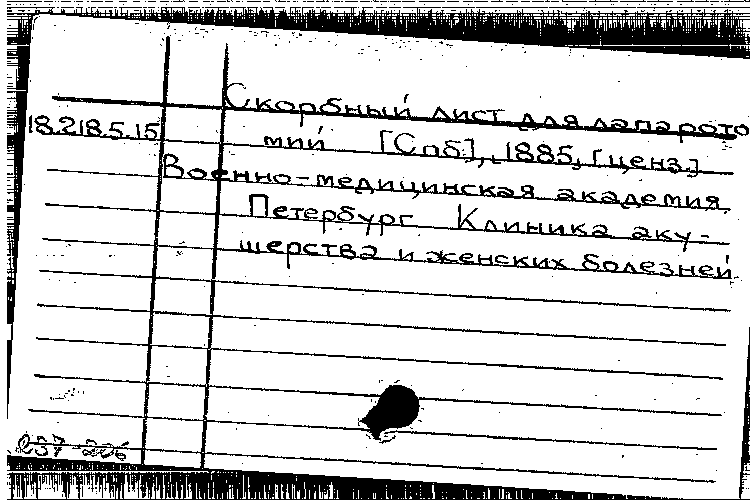 Скорбный лист для лапарото
18.218.5.15 мий [Спб], 1885, [ценз.]
Военно-медицинская академия.
Петербург Клиника аку-
шерства и женских болезней